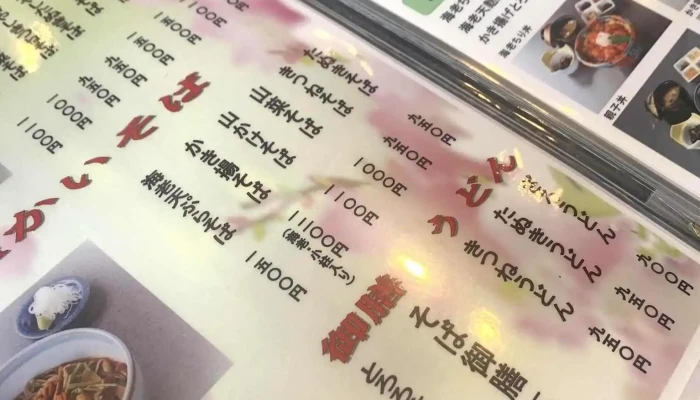 海老天
かき揚げとろ
海老ちり丼
親子丼
一五〇〇円
九五〇円
九五〇円
一〇〇〇円
一一〇〇円
かいそば
たぬきそば 九五〇円
きつねそば 九五〇円
山菜そば 一〇〇〇円
山かけそば 一一〇〇円
かき揚そば
(海老・小柱入り)
海老天ぷらそば 一五〇〇円
うどん
うどん 九〇〇円
たぬきうどん 九五〇円
きつねうどん 九五〇円
御膳
そば御膳
とろろ